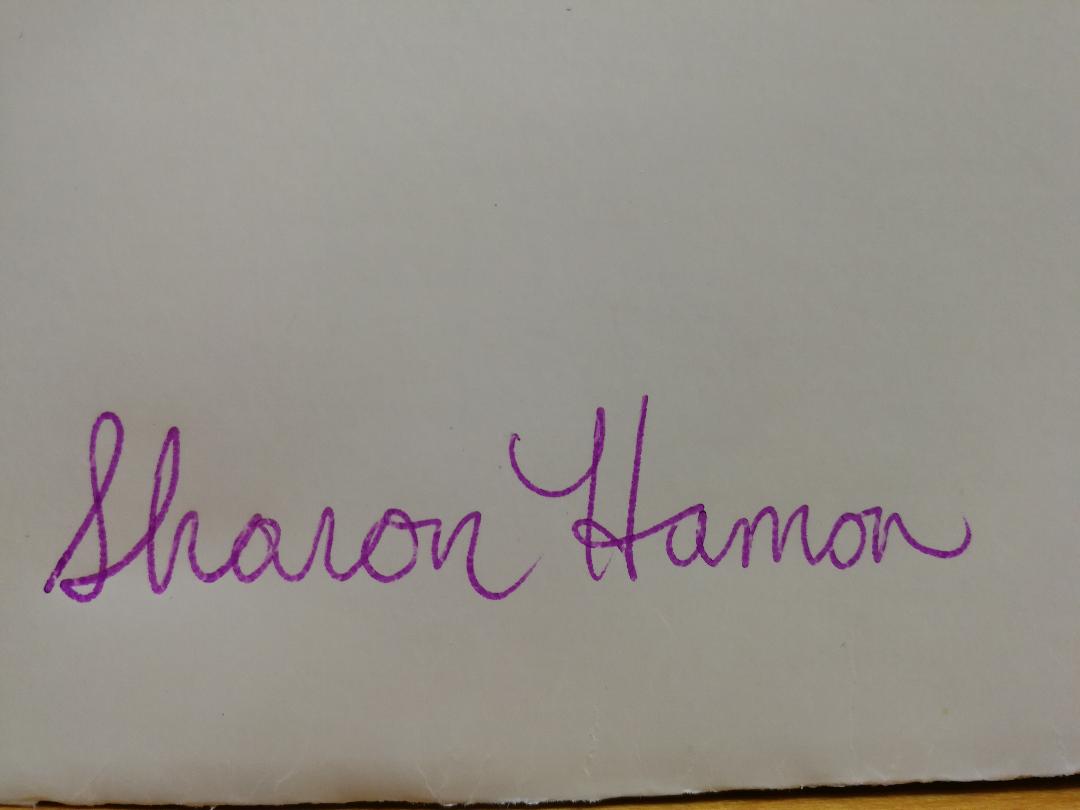 Sharon Hamon